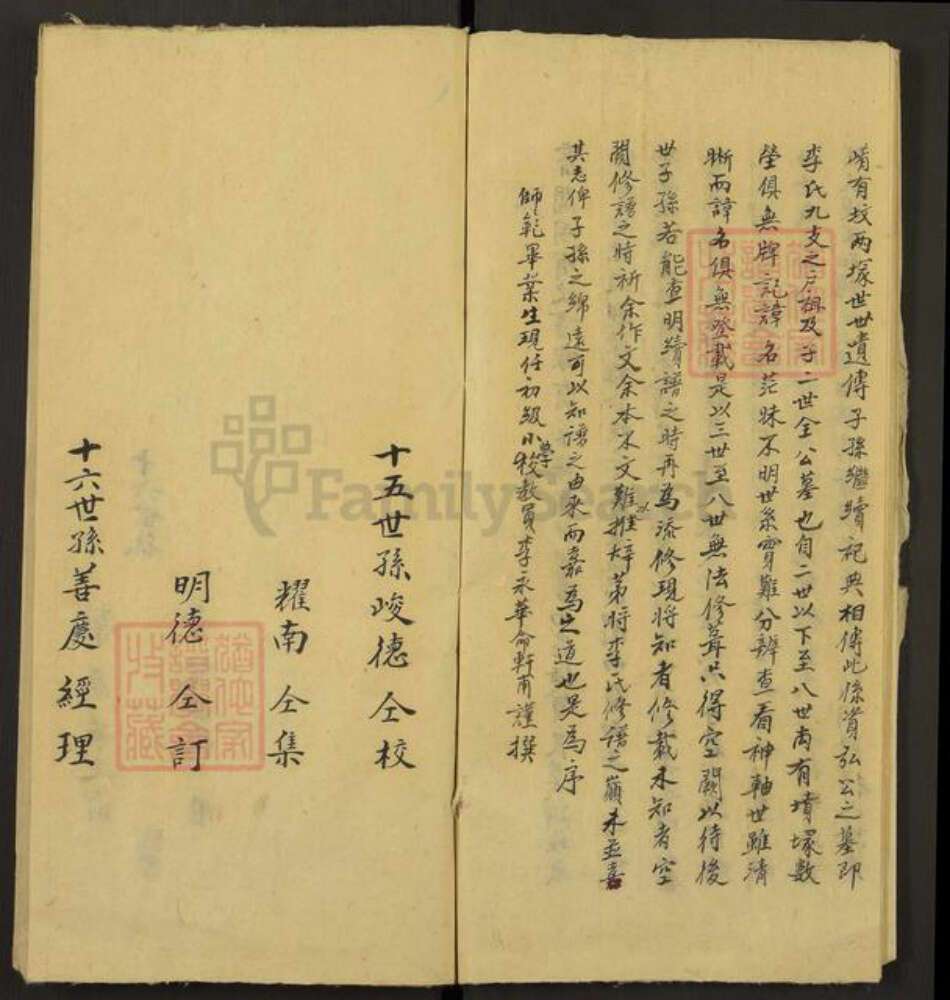 嵴有坟两塚世世遺傳子孫繼續祀典相傳此係賞弘公之墓即
李氏九支之戶祖及于二世全公墓也自二世以下至八世尚有墳塚数
塋俱無牌記諱名茫昧不明世系實難分辨查看神軸世雖清
晰而諱名俱無登載是以三世至八世無法修葺只得空闕以待後
世子孫若能查明續譜之時再為添修現將知者修載未知者空
闕修譜之時祈余作文余本不文難以推辞第将李氏修譜之巔末並喜
其志俾子孫之綿遠可以知譜之由來而嘉為之道也是為序
師範畢業生現任初級小學校教員李永華命軒甫謹撰
十五世孫峻德仝校
耀南仝集
明德仝訂
十六世孫善慶經理
FamilySearch